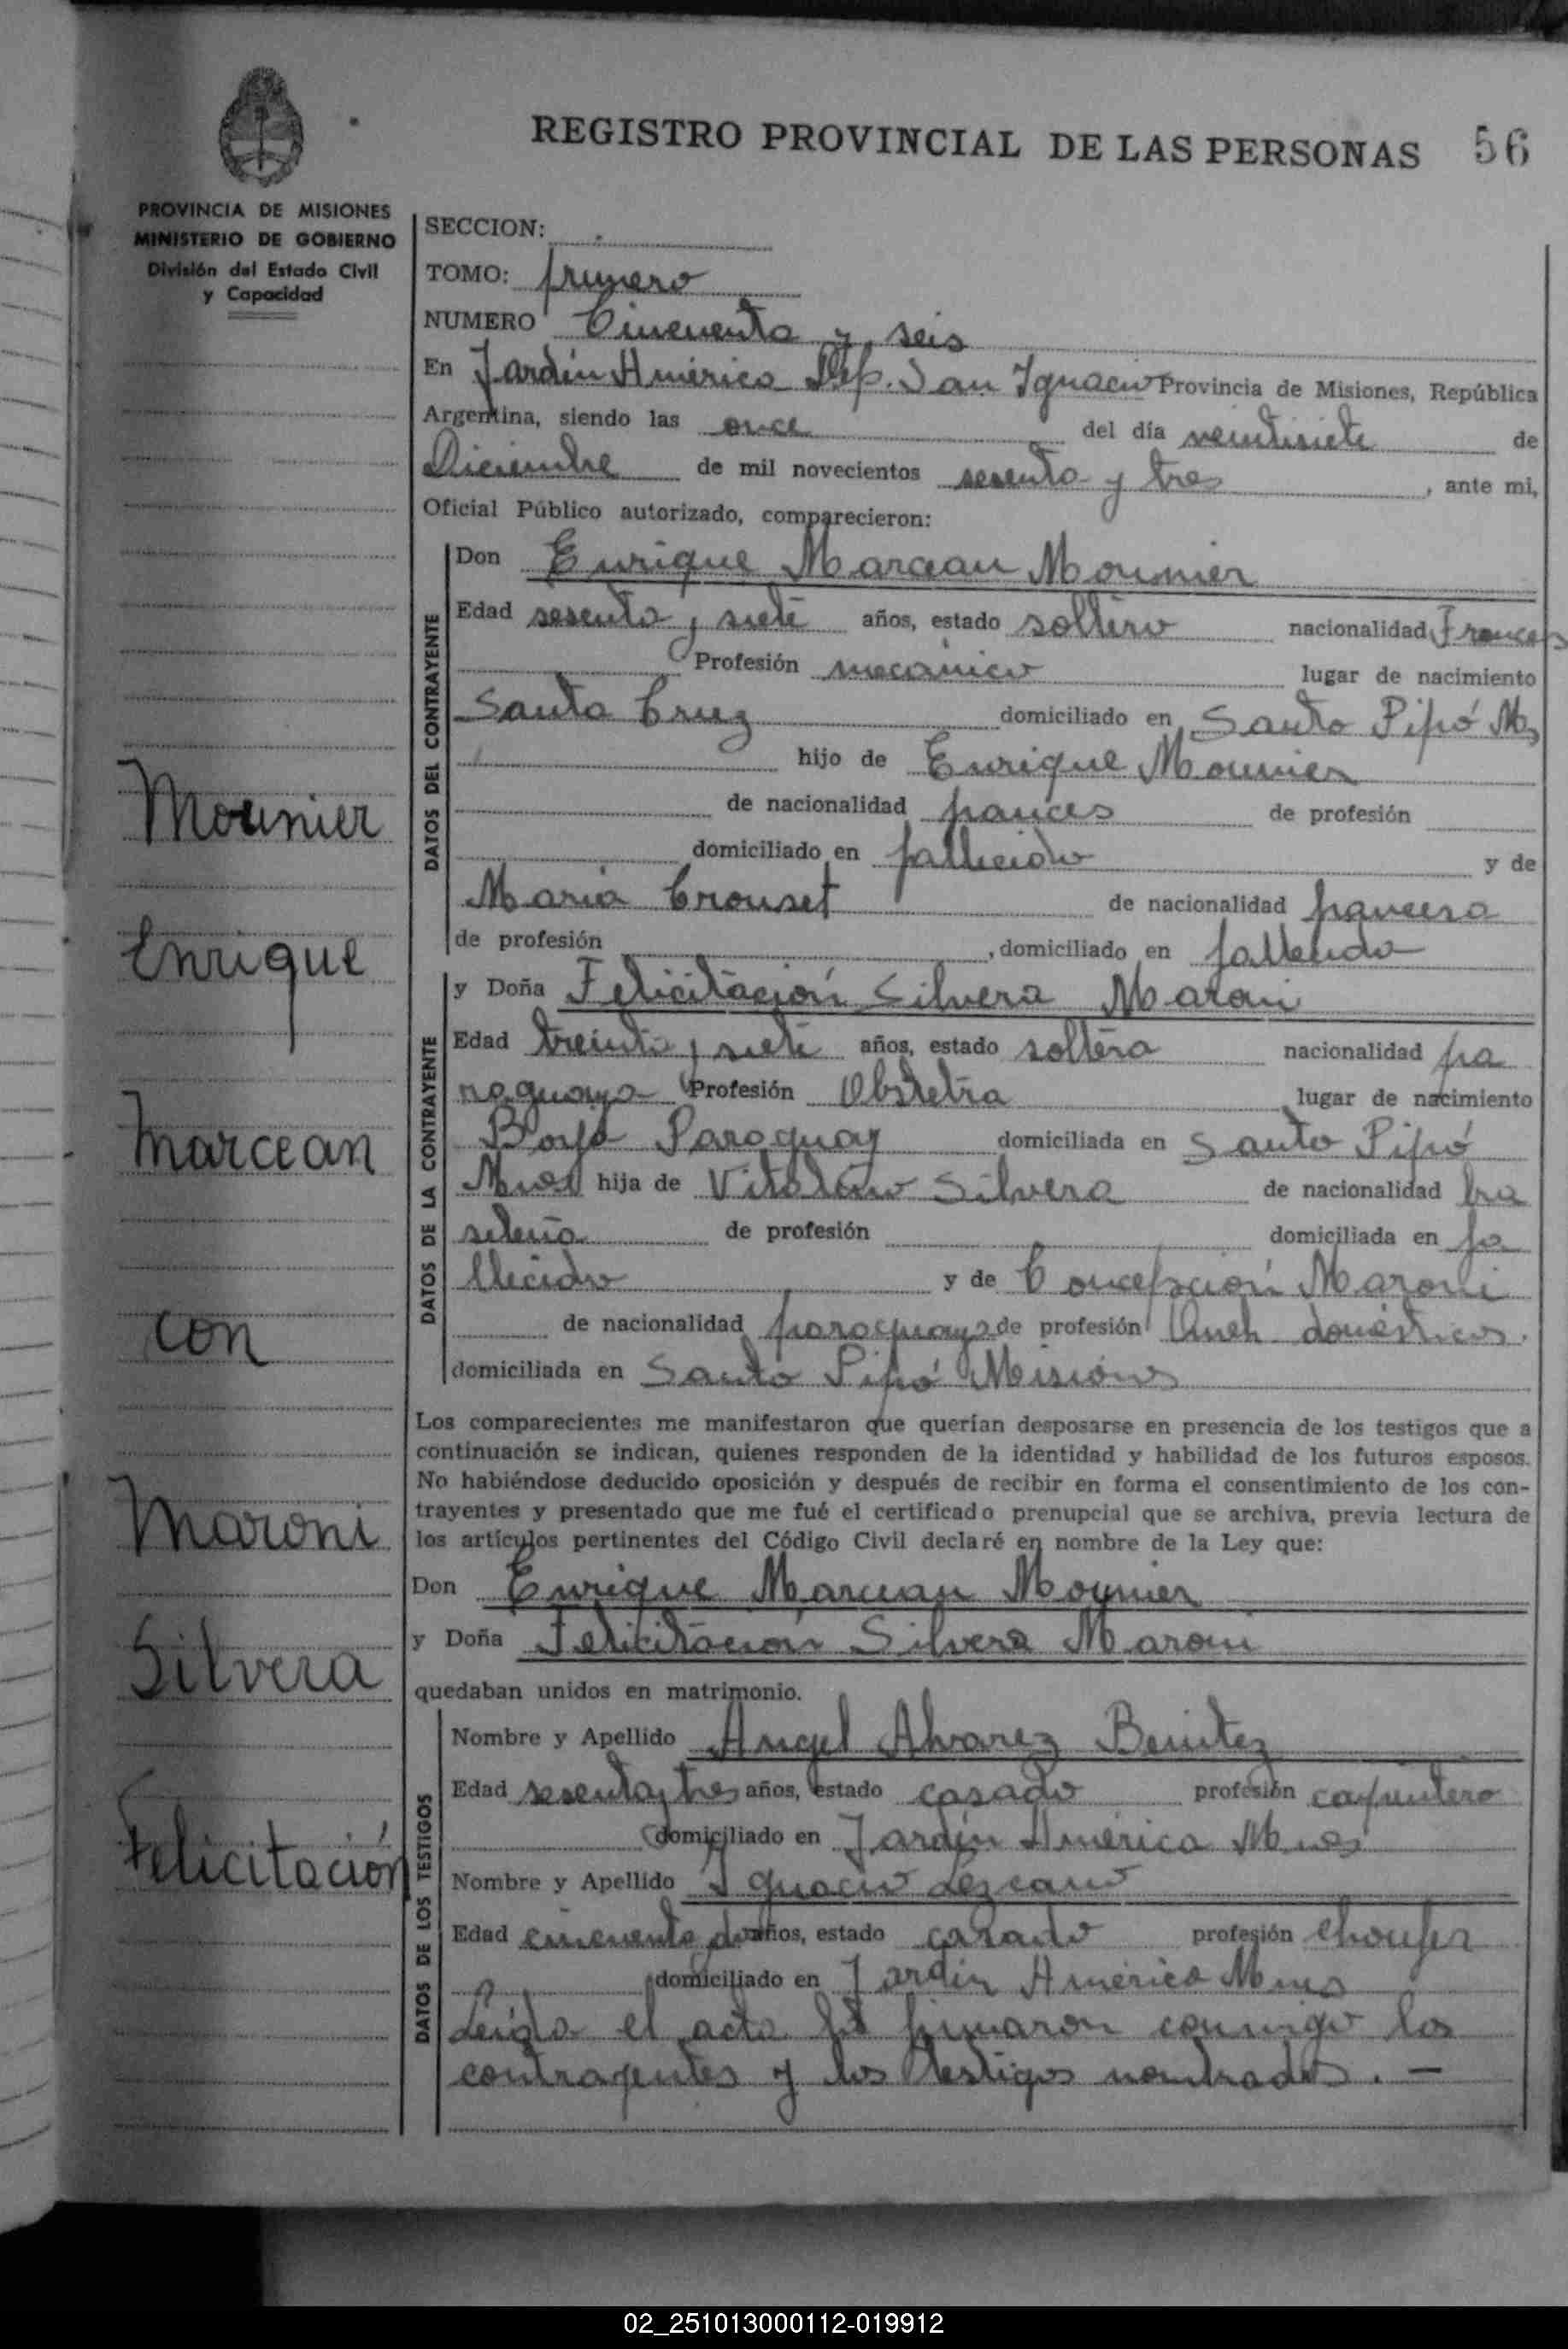 REGISTRO PROVINCIAL DE LAS PERSONAS 56
PROVINCIA DE MISIONES
MINISTERIO DE GOBIERNO
División del Estado Civil
y Capacidad
Mounier
Enrique
Marcean
con
Maroni
Silvera
Felicitación
SECCION:
TOMO: primero
NUMERO Cincuenta y seis
En Jardín América Dep. San Ignacio Provincia de Misiones, República
Argentina, siendo las once del día veintisiete de
Diciembre de mil novecientos sesenta y tres, ante mi,
Oficial Público autorizado, comparecieron:
DATOS DEL CONTRAYENTE
Don Enrique Marcean Mounier
Edad sesenta y siete años, estado soltero nacionalidad Frances
Profesión mecánico lugar de nacimiento
Santa Cruz domiciliado en Santo Pipó Ms
hijo de Enrique Mounier
de nacionalidad frances de profesión
domiciliado en fallecido y de
María Crouset de nacionalidad francesa
de profesión , domiciliado en fallecida
DATOS DE LA CONTRAYENTE
y Doña Felicitación Silvera Maroni
Edad treinta y siete años, estado soltera nacionalidad pa
raguaya Profesión Obstetra lugar de nacimiento
Paraguay domiciliada en Santo Pipó
Mnes hija de Silvera de nacionalidad bra
sileña de profesión domiciliada en fa
llecido y de Concepción Maroni
de nacionalidad paraguaya de profesión Queh domésticos.
domiciliada en Santo Pipó Misiones
Los comparecientes me manifestaron que querían desposarse en presencia de los testigos que a
continuación se indican, quienes responden de la identidad y habilidad de los futuros esposos.
No habiéndose deducido oposición y después de recibir en forma el consentimiento de los con-
trayentes y presentado que me fué el certificado prenupcial que se archiva, previa lectura de
los artículos pertinentes del Código Civil declaré en nombre de la Ley que:
Don Enrique Marcean Mounier
y Doña Felicitación Silvera Maroni
quedaban unidos en matrimonio.
DATOS DE LOS TESTIGOS
Nombre y Apellido Angel Alvarez Benitez
Edad sesenta y tres años, estado casado profesión carpintero
domiciliado en Jardín América Mnes
Nombre y Apellido Ignacio Lezcano
Edad cincuenta dos años, estado casado profesión choufer
domiciliado en Jardín América Mnes
Leída el acta la firmaron conmigo los
contrayentes y los testigos nombrados. —
02_251013000112-019912